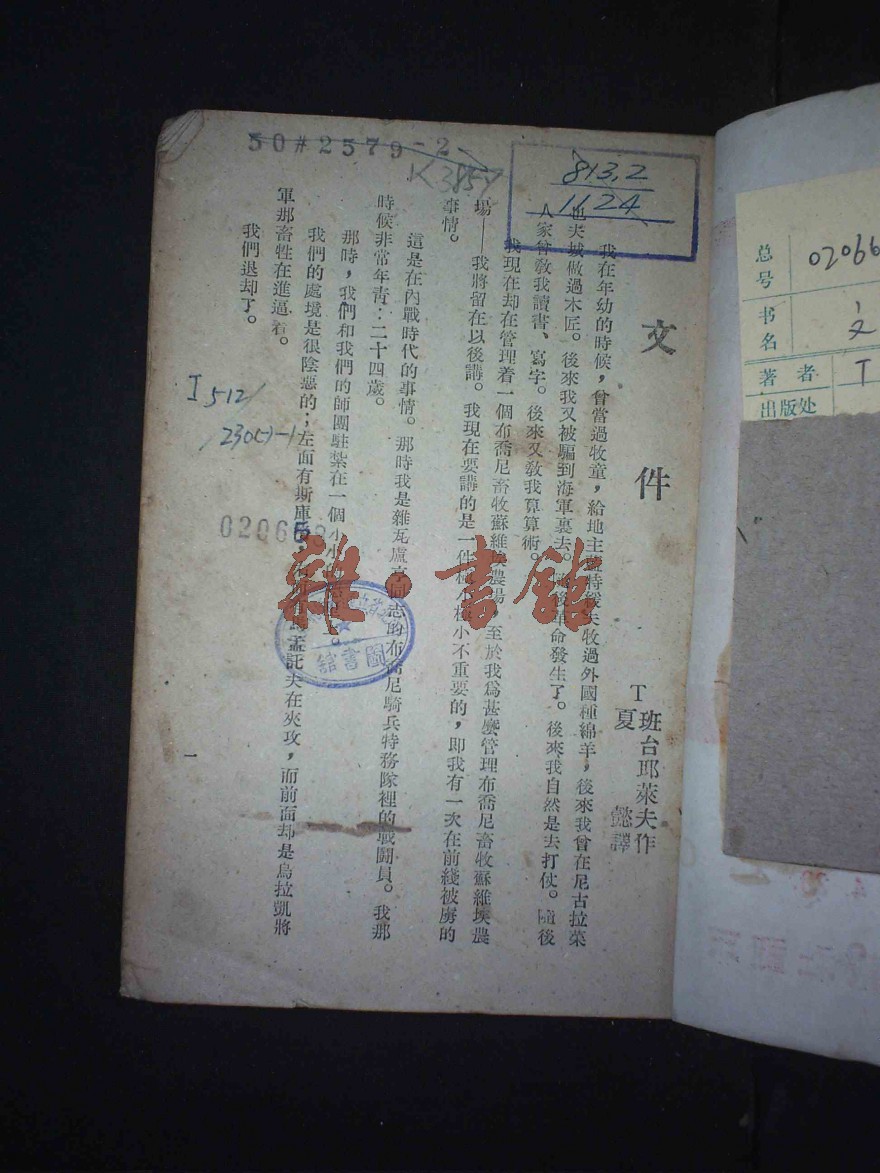 50#2579-2
K385Y
813.2
1124
文件
T 班台耶萊夫作
夏懿譯
我在年幼的時候，曾當過牧童，給地主 特綏夫牧過外國種綿羊，後來我曾在尼古拉萊
也夫城做過木匠。後來我又被騙到海軍裏去。 後革命發生了。後來我自然是去打仗。隨後
人家曾教我讀書、寫字。後來又教我算算術。
我現在却在管理着一個布喬尼畜牧蘇維埃農場，至於我爲甚麼管理布喬尼畜牧蘇維埃農
場——我將留在以後講。我現在要講的是一件極小極小不重要的，即我有一次在前綫被虜的
事情。
這是在內戰時代的事情。那時我是雜瓦盧 同志的布喬尼騎兵特務隊裡的戰鬪員。我那
時候非常年青：二十四歲。
那時，我們和我們的師團駐紮在一個小小 。
我們的處境是很陰惡的；左面有斯庫 孟託夫在夾攻，而前面却是烏拉凱將
軍那畜牲在進逼着。
我們退却了。
一
I512/
/230(-)-1
020658
圖書館
雜·書館
总号
02066
书名
文
著者
T
出版处